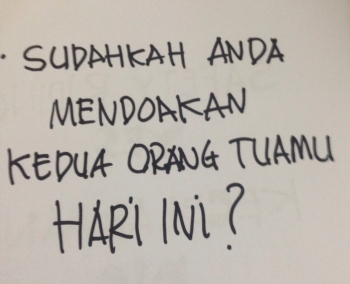 · SUDAHKAH ANDA
MENDOAKAN
KEDUA ORANG TUAMU
HARI INI?